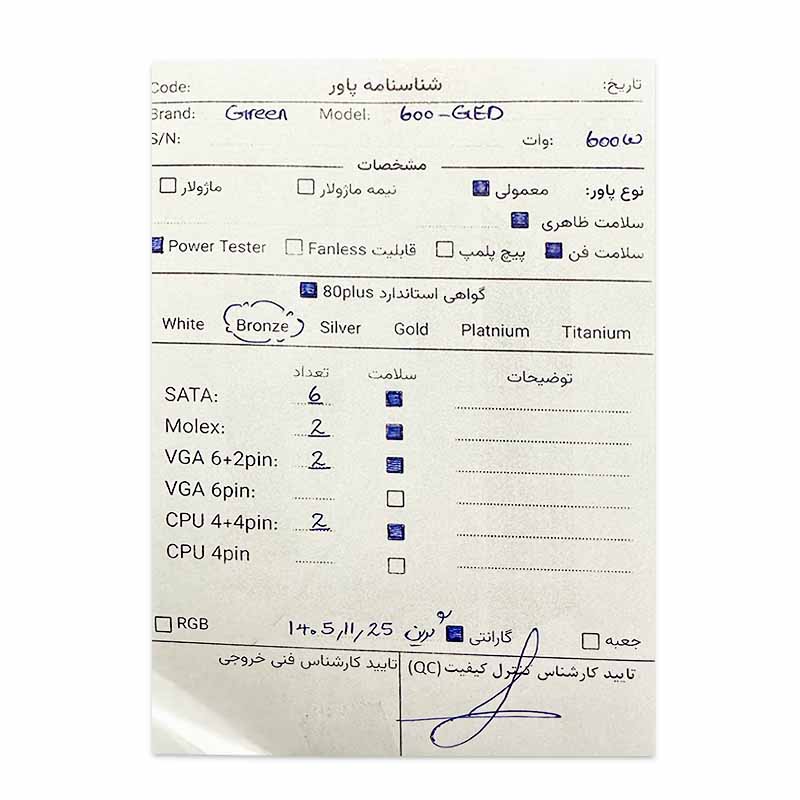 تاریخ: شناسنامه پاور Code:
Brand: Green Model: 600-GED
S/N: وات: 600W
مشخصات
نوع پاور: معمولی نیمه ماژولار ماژولار
سلامت ظاهری
سلامت فن پیچ پلمپ قابلیت Fanless Power Tester
گواهی استاندارد 80plus
White Bronze Silver Gold Platnium Titanium
تعداد سلامت توضیحات
SATA: 6
Molex: 2
VGA 6+2pin: 2
VGA 6pin:
CPU 4+4pin: 2
CPU 4pin
جعبه گارانتی گرین 1405,11,25 RGB
تایید کارشناس کنترل کیفیت (QC) تایید کارشناس فنی خروجی